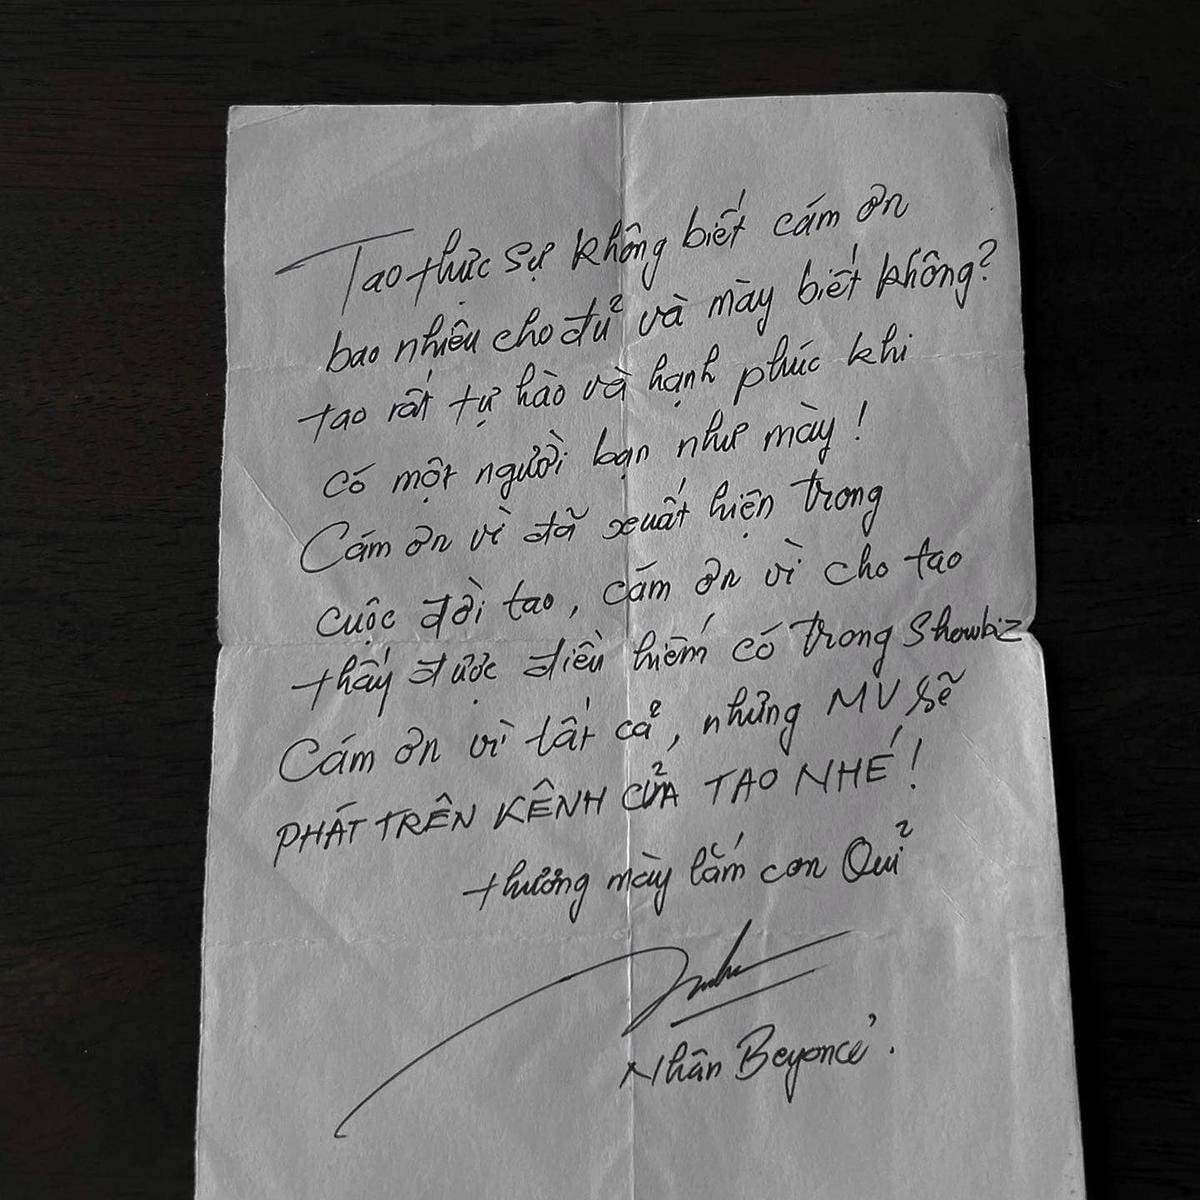 Tao thực sự không biết cám ơn
bao nhiêu cho đủ và mày biết không?
tao rất tự hào và hạnh phúc khi
có một người bạn như mày!
Cám ơn vì đã xuất hiện trong
cuộc đời tao, cám ơn vì cho tao
thấy được điều hiếm có trong Showbiz
Cám ơn vì tất cả, những MV sẽ
PHÁT TRÊN KÊNH CỦA TAO NHÉ!
thương mày lắm con Quỉ
Nhân Beyoncé.